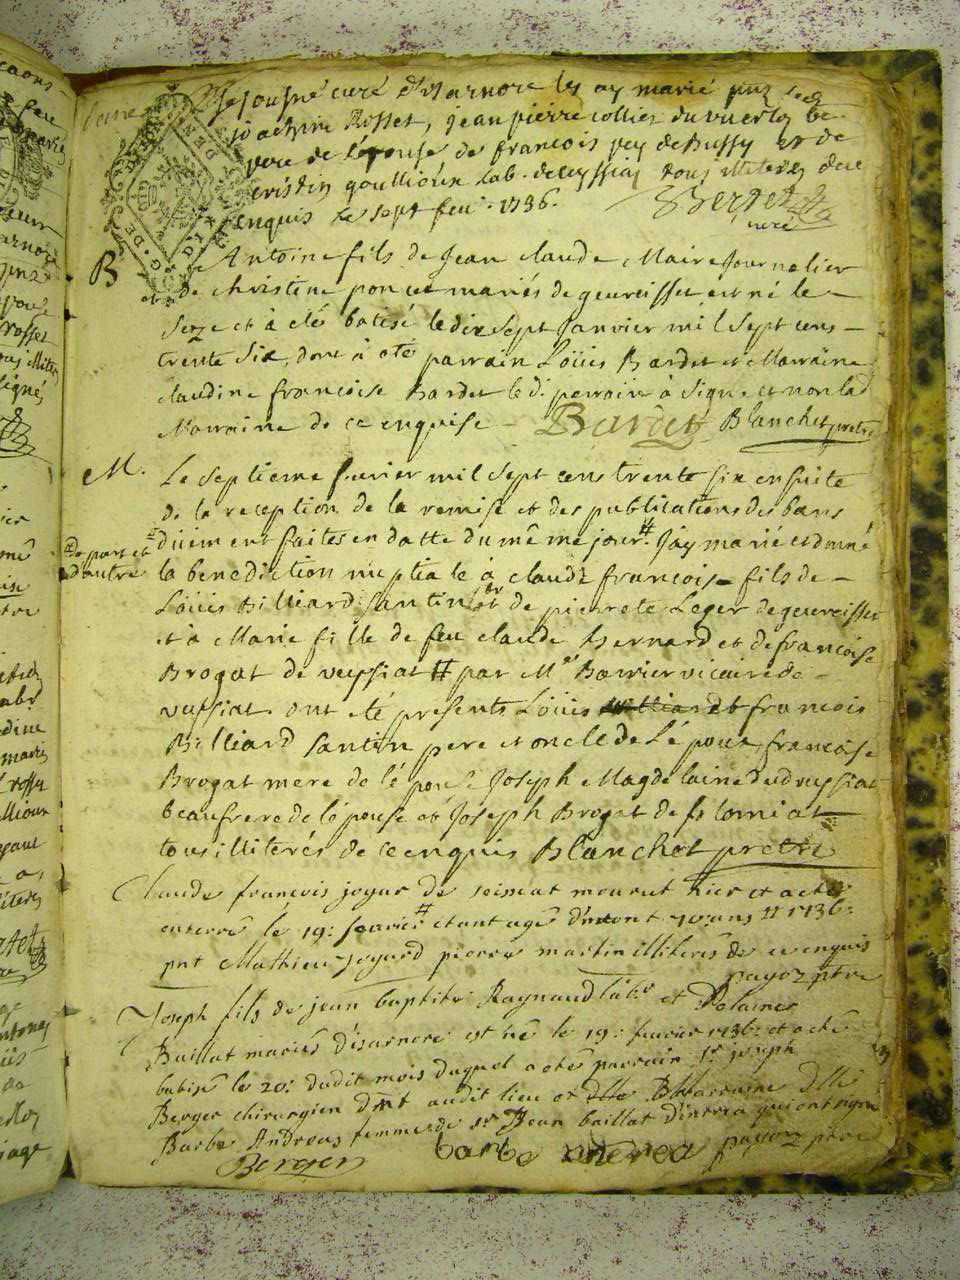 Je soussné curé d'Isarnore les ay marié pnts
joachim Rosset, jean pierre collier du
de l'épouse de francois rey de Bussy et de
goullioux lab. de ceyssiaz tous illiterés de ce
enquis le sept feu. 1736. Berzet
curé
B Antoine fils de Jean claude Maire Journalier
et de christine poncet mariés de geureisset est né le
seize et à eté batisé le dix sept Janvier mil sept cens
trente six, dont à eté parrain Loüis Bardet et Marraine
claudine francoise Bardet le d. parrain à signé et non la
Marraine de ce enquise Bardet Blanchet pretre
M. Le septieme fevrier mil sept cens trente six ensuite
de la reception de la remise et des publications des bans
düement faites en datte du même jour # J'ay marié et donné
# de part et
d'autre
la benediction nuptiale à claude francois fils de
Loüis Billiard santin et de pierrete Leger de geureisset
et à Marie fille de feu claude Bernard et de francoise
Brogat de veyssiat # par Mr Barrier vicaire de
veyssiat ont eté présents Loüis et francois
Billiard santin pere et oncle de l'époux, francoise
Brogat mere de l'épouse Joseph Magdelaine dud veyssiat
beaufrere de l'épouse et Joseph Brogat de
tous illiterés de ce enquis Blanchet pretre
Claude francois joyar de mourut hier et a eté
enterré le 19: fevrier # etant agé d'environt 70: ans # 1736:
pnt Mathieu joyard pierre martin illiterés de ce enquis
payoz ptre
Joseph fils de jean baptiste Raynaud labr et
Baillat mariés d'isarnore est né le 19: fevrier 1736: et a eté
batisé le 20: dudit mois duquel a eté parrain sr joseph
Berger chirurgien dmt audit lieu et Marraine dlle
Barbe Andreas femme de sr Jean baillat d'intria qui ont signé
Berger barbe andrea payoz ptre